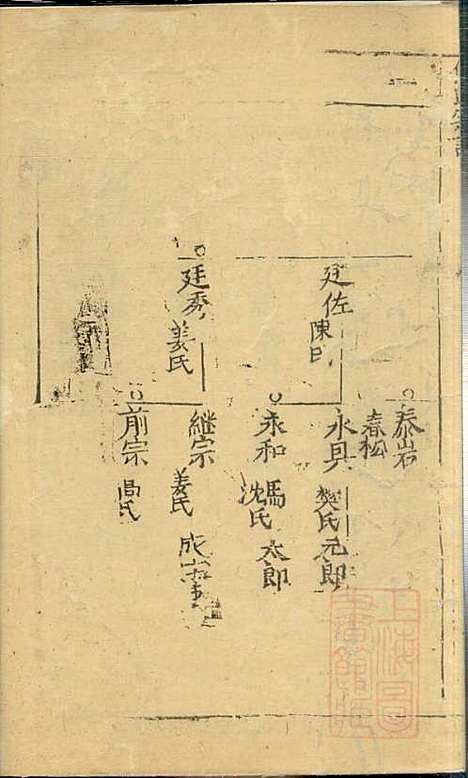 泰岩
春松
廷佐
陳氏
永具
樊氏 元郎
永和
馮氏 太郎
沈氏
廷秀
姜氏
継宗
姜氏
前宗
上海圖
書館藏